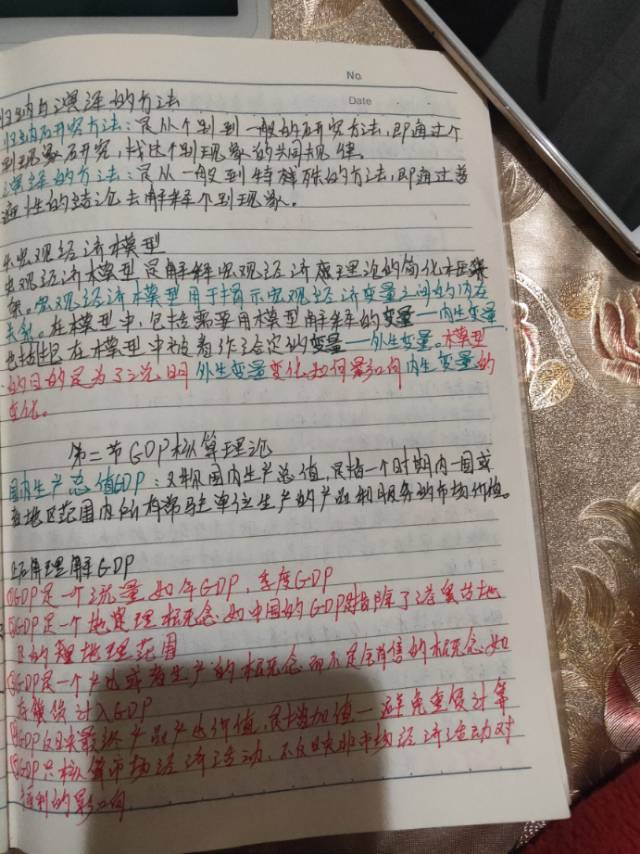 No.
Date
归纳与演绎的方法
归纳研究方法：是从个别到一般的研究方法，即通过个
别现象研究，找出个别现象的共同规律
演绎的方法：是从一般到特殊的方法，即通过普
遍性的结论去解释个别现象。
宏观经济模型
宏观经济模型是解释宏观经济原理论的简化框架
宏观经济模型用于揭示宏观经济变量之间的内在
在模型中，包括需要用模型解释的变量—内生变量
也包括在模型中被看作给定的变量—外生变量。模型
的目的是为了说明外生变量变化如何影响内生变量的
变化。
第二节GDP核算理论
国内生产总值GDP：又称国内生产总值，是指一个时期内一国或
地区范围内所有常驻单位生产的产品和服务的市场价值。
正确理解GDP
①GDP是一个流量 如年GDP，季度GDP
②GDP是一个地理概念 如中国的GDP指除了港澳台地
区的 地理范围
③GDP是一个产出或者生产的概念而不是销售的概念 如
存货 计入GDP
④GDP反映最终产品产出价值，是增加值—避免重复计算
⑤GDP只核算市场经济活动，不反映非市场经济活动对
福利的影响